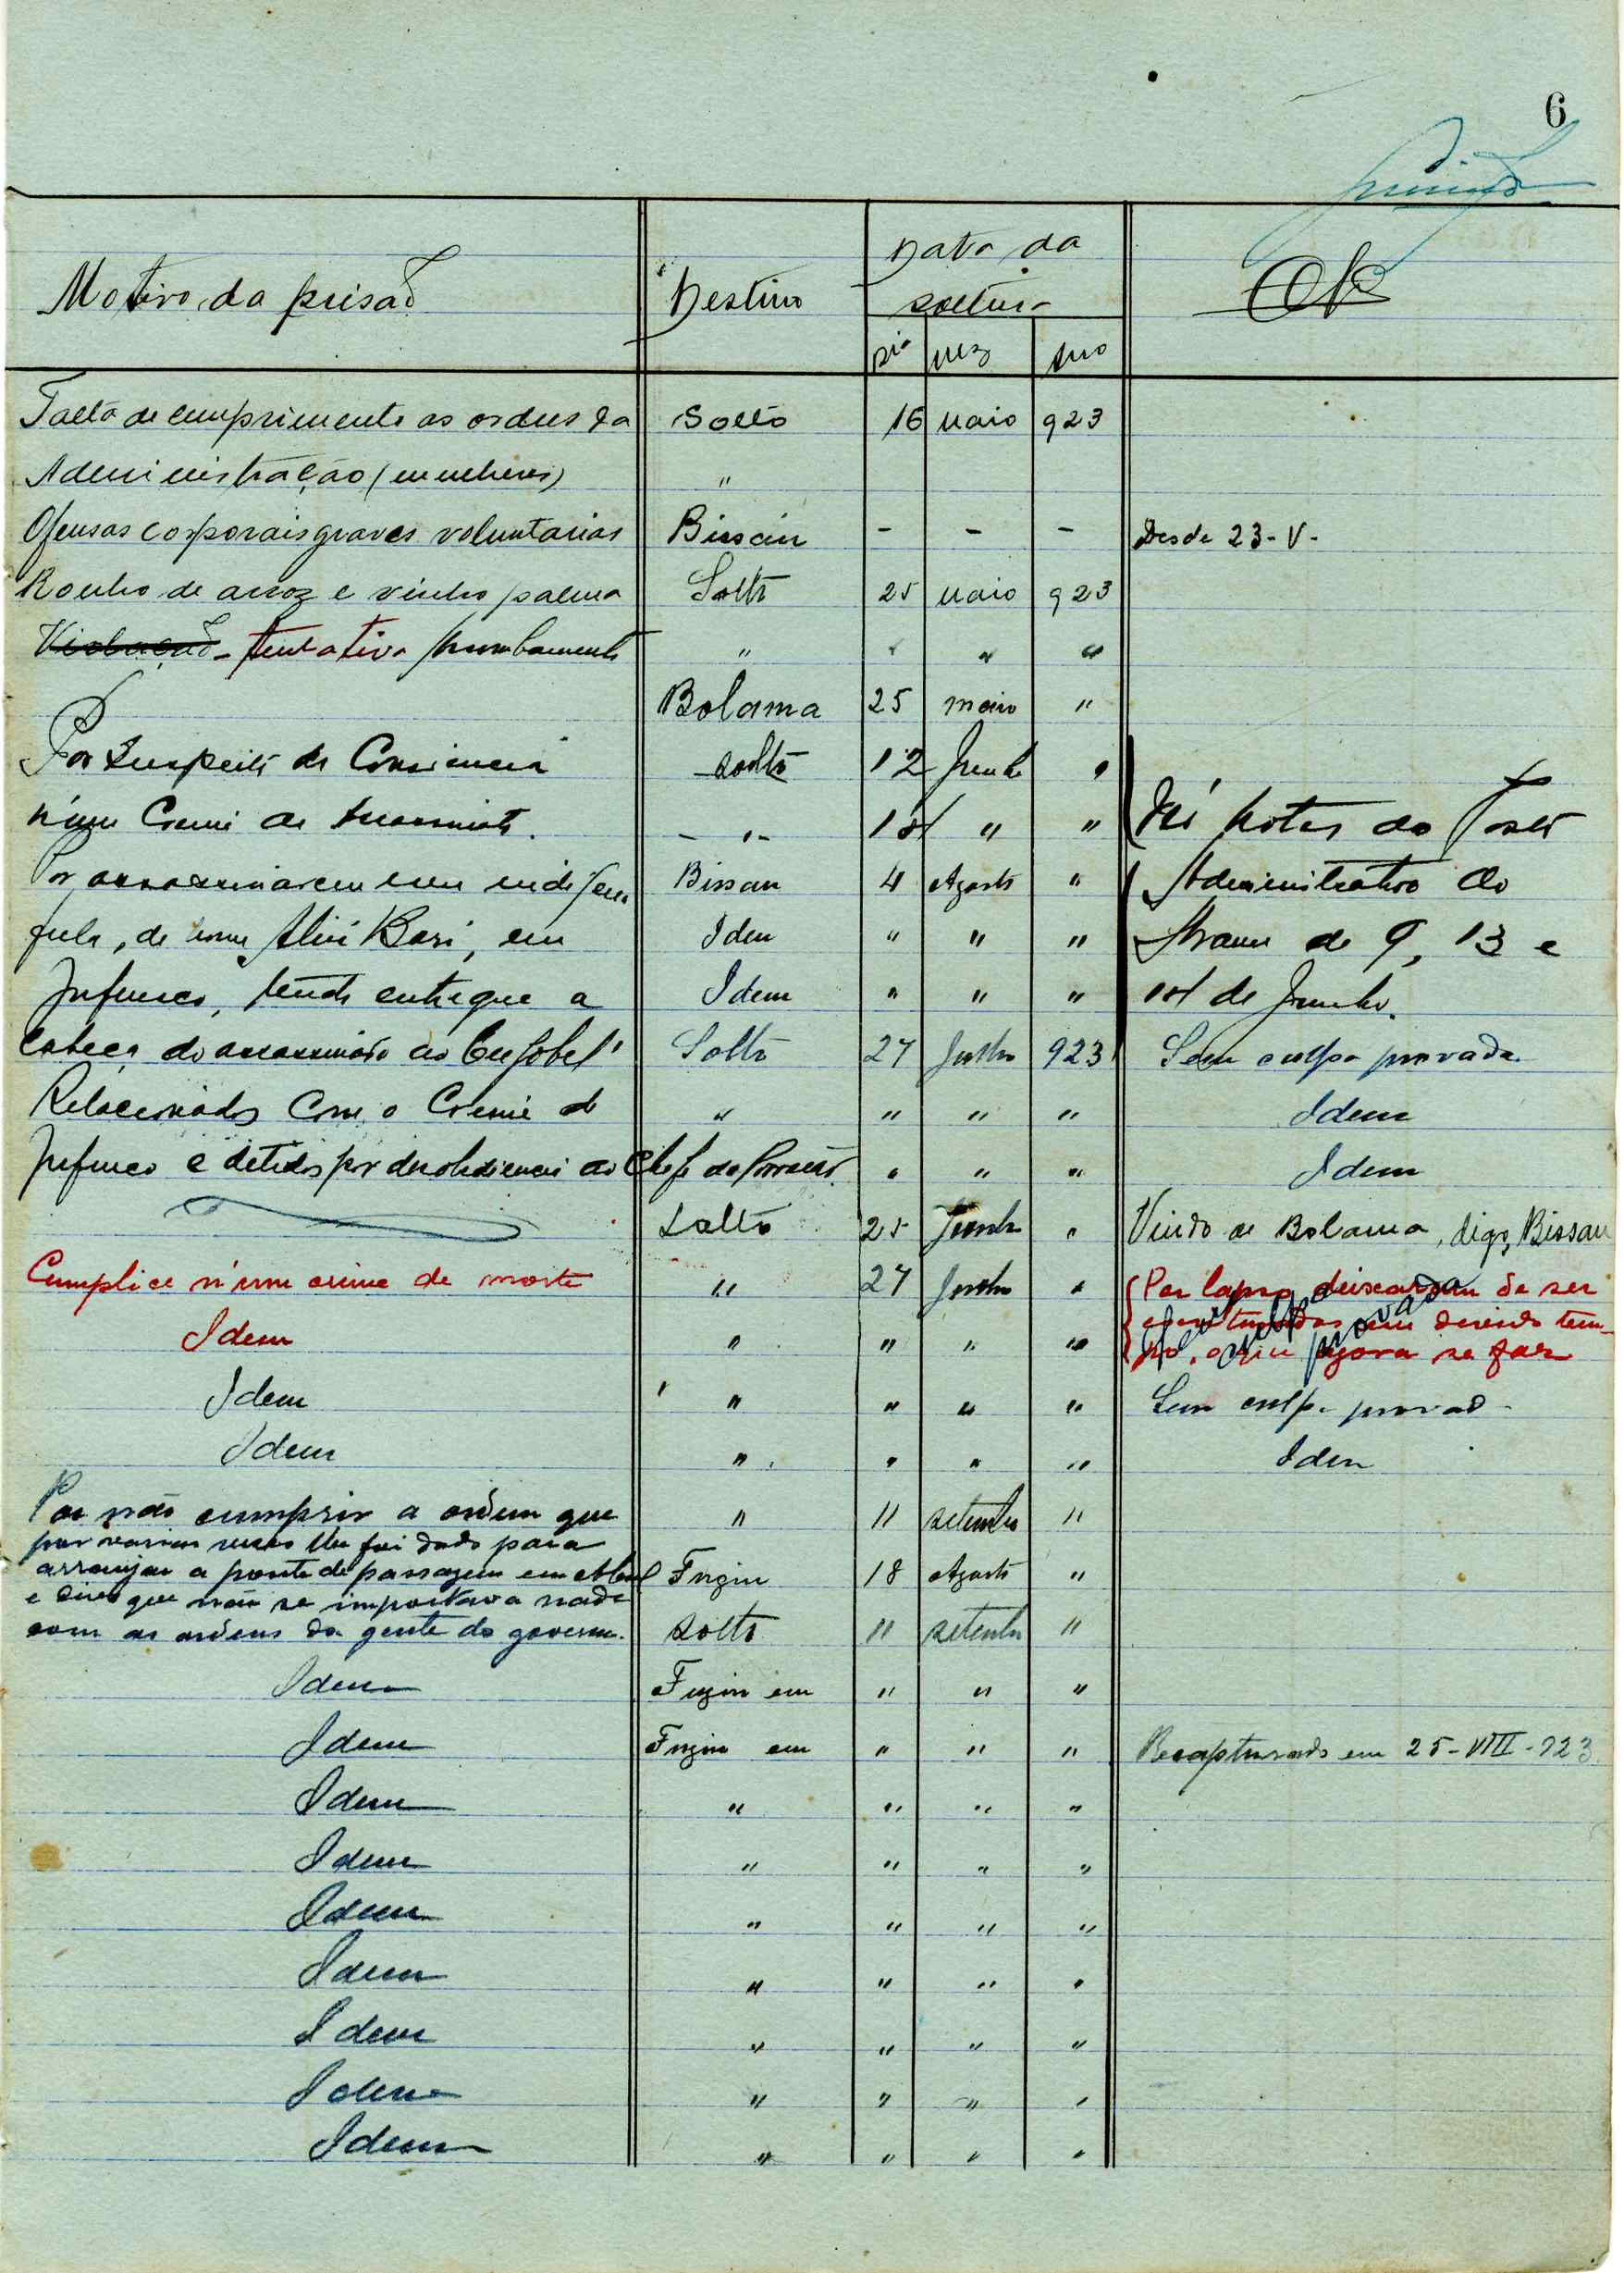 6
Motivo da prisão Destino Data da soltura Ob
Dia Mez Ano
Falta de cumprimento as ordens da Solto 16 Maio 923
Administração (mulheres) "
Ofensas corporais graves voluntarias Bissau - - - Desde 23-V-
Roubo de arroz e vinho palma Solto 25 Maio 923
Violação - tentativa " " " "
Bolama 25 maio "
Por suspeita de Consciencia solto 12 Junho "
n'um Crime de - " - 18 " " notas do Posto
Por assassinarem um indigena Bissau 4 Agosto " Administrativo de
fula, de nome Bari, em Idem " " " de 9, 13 e
tendo entregue a Idem " " " 18 de Junho.
cabeça do assassinado ao Solto 27 Junho 923 Sem culpa provada
Relacionados Com o Crime de " " " " Idem
e detidos por desobediencia ao Chefe da " " " Idem
Solto 25 Junho " Vindo de Bolama, digo, Bissau
Cumplice n'um crime de morte " 27 Junho " Por lapso deixaram de ser
Idem " " " " em devido tem-
Idem " " " " po, o que agora se faz
sem culpa provada
Sem culpa provad
Idem " " " " Idem
Por não cumprir a ordem que " 11 setembro "
por varias vezes lhe foi dado para
arranjar a ponte de passagem em Fugiu 18 Agosto "
e disse que não se importava nada
com as ordens da gente do governo. Solto 11 setembro "
Idem Fugiu em " " "
Idem Fugiu em " " " Recapturado em 25-VIII-923
Idem " " " "
Idem " " " "
Idem " " " "
Idem " " " "
Idem " " " "
Idem " " " "
Idem " " " "